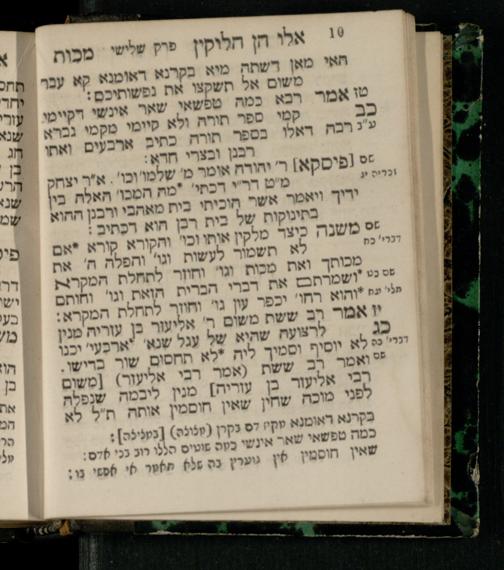 10 אלו הן הלוקין פרק שלישי מכות
האי מאן דשתה מיא בקרנא דאומנא קא עבר
משום אל תשקצו את נפשותיכם:
טז אמר רבא כמה טפשאי שאר אינשי דקיימי
כב קמי ספר תורה ולא קיימי מקמי גברא
ע"ב רבה דאלו בספר תורה כתיב ארבעים ואתו
רבנן ובצרי חדא:
שם [פיסקא] ר' יהודה אומר מ' שלמו' וכו'. א"ר יצחק
זכריה יג מ"ט דר"י דכתי' *מה המכו' האלה בין
ידיך ויאמר אשר הוכיתי בית מאהבי ורבנן ההוא
בתינוקות של בית רבן הוא דכתיב:
שם משנה כיצד מלקין אותו וכו' והקורא קורא *אם
דברי' כח לא תשמור לעשות וגו' והפלה ה' את
מכותך ואת מכות וגו' וחוזר לתחלת המקרא
שם כט *ושמרתם את דברי הברית הזאת וגו' וחותם
תלי' עח *והוא רחו' יכפר עון גו' וחוזר לתחלת המקרא:
יז אמר רב ששת משום ר' אליעזר בן עזריה מנין
כג לרצועה שהיא של עגל שנא' *ארבעי' יכנו
דברי' כה לא יוסיף וסמיך ליה *לא תחסום שור בדישו.
שם ואמר רב ששת (אמר רבי אליעזר) [משום
רבי אליעזר בן עזריה] מנין ליבמה שנפלה
לפני מוכה שחין שאין חוסמין אותה ת"ל לא
בקרנא דאומנא עקיז דם בקרן (עלולה) [בעלולה]:
כמה טפשאי שאר אינשי כמה שוטים הללו רוב בני אדם:
שאין חוסמין אין גוערין בה שלא תאמר אי אפשי בו: